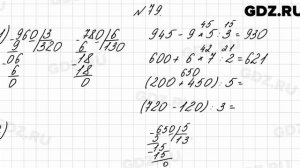 GDZ.RU
№ 79.
) -960|3 -780|6
9 |320 6 |130
-06 -18
6 18
0 0
45 15
945 - 9 · 5 : 3 = 930
42 21
600 + 6 · 7 : 2 = 621
650
(200 + 450) : 5 =
(720 - 120) : 3 =
)
-650|5
5 |13
-15
15
0
GDZ.RU